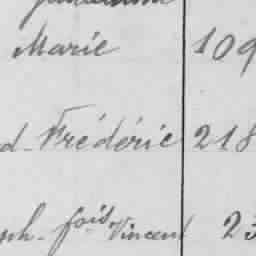 Marie 109
d-Frédéric 218
ph-fois Vincent 23